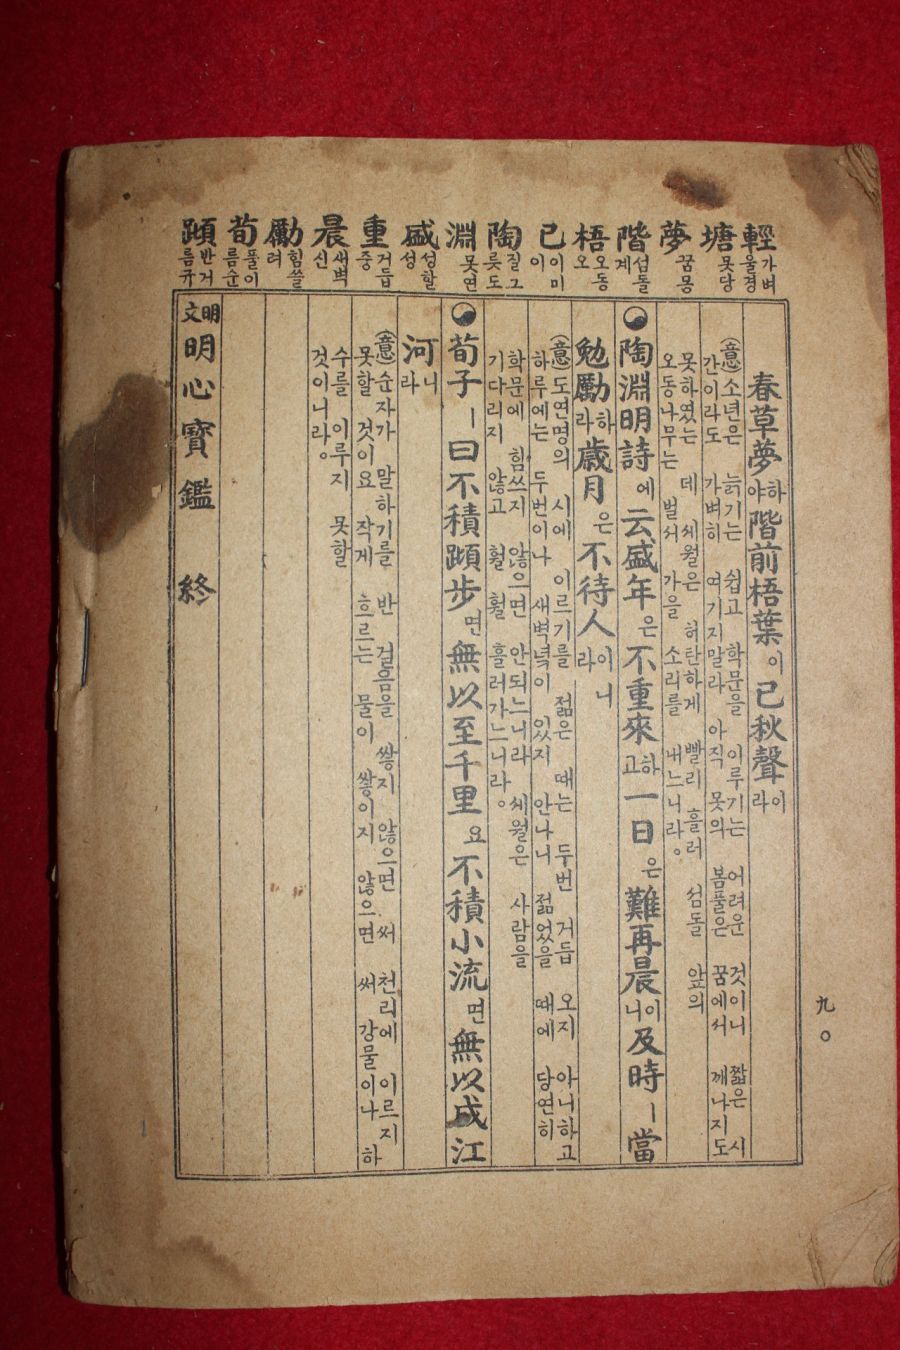 輕 가벼울 경
塘 못 당
夢 꿈 몽
階 섬돌 계
梧 오동 오
已 이미 이
陶 질그릇 도
淵 못 연
盛 성할 성
重 거듭 중
晨 새벽 신
勵 힘쓸 려
荀 풀이름 순
蹞 반거름 규
春草夢하야階前梧葉이已秋聲이라
(意)소년은 늙기는 쉽고 학문을 이루기는 어려운 것이니 짧은 시
간이라도 가벼히 여기지말라 아직 못의 봄풀은 꿈에서 깨나지도
못하였는 데 세월은 허탄하게 빨리 흘러 섬돌 앞의
오동나무는 벌서 가을 소리를 내느니라。
陶淵明詩에云盛年은不重來하고一日은難再晨이니及時ㅣ當
勉勵하라歲月은不待人이니라
(意)도연명의 시에 이르기를 젊은 때는 두번 거듭 오지 아니하고
하루에는 두번이나 새벽녘이 있지 안나니 젊었을 때에 당연히
학문에 힘쓰지 않으면 안되느니라 세월은 사람을
기다리지 않고 훨훨 흘러가느니라。
荀子ㅣ曰不積蹞步면無以至千里요不積小流면無以成江
河니라
(意)순자가 말하기를 반 걸음을 쌓지 않으면 써 천리에 이르지
못할 것이요 작게 흐르는 물이 쌓이지 않으면 써 강물이나 하
수를 이루지 못할
것이니라。
明文 明心寶鑑 終
九〇